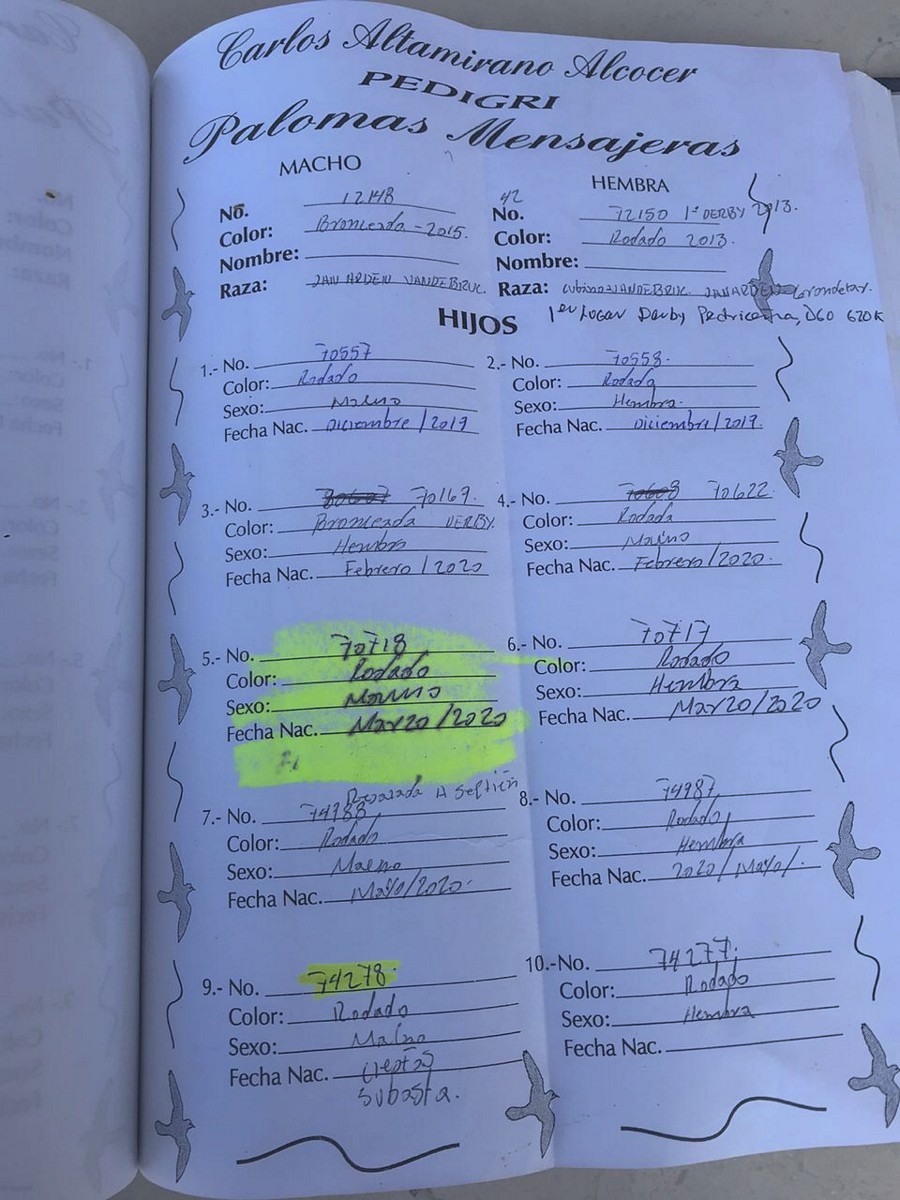 Carlos Altamirano Alcocer
PEDIGRI
Palomas Mensajeras
MACHO
No. 12148
Color: Bronceada - 2015.
Nombre:
Raza: JAN ARDEN VANDEBRUC.
HEMBRA
42
No. 72150 1er DERBY 2013.
Color: Rodado 2013.
Nombre:
Raza: VANDEBRUC. JANARDEN
1er Lugar Derby 620K
HIJOS
1.- No. 70557
Color: Rodado
Sexo: Macho
Fecha Nac. Diciembre / 2019
2.- No. 70558.
Color: Rodada
Sexo: Hembra.
Fecha Nac. Diciembre / 2019.
3.- No. 70169.
Color: Bronceada DERBY.
Sexo: Hembra
Fecha Nac. Febrero / 2020
4.- No. 70622.
Color: Rodada
Sexo: Macho
Fecha Nac. Febrero / 2020.
5.- No. 70718
Color: Rodado
Sexo: Macho
Fecha Nac. Marzo / 2020
6.- No. 70717
Color: Rodado
Sexo: Hembra
Fecha Nac. Marzo / 2020
A Septien
7.- No. 74988
Color: Rodado
Sexo: Macho
Fecha Nac. Mayo / 2020.
8.- No. 74987
Color: Rodado
Sexo: Hembra
Fecha Nac. 2020 / Mayo /.
9.- No. 74278.
Color: Rodado
Sexo: Macho
Fecha Nac.
Subasta.
10.-No. 74277.
Color: Rodado
Sexo: Hembra
Fecha Nac.